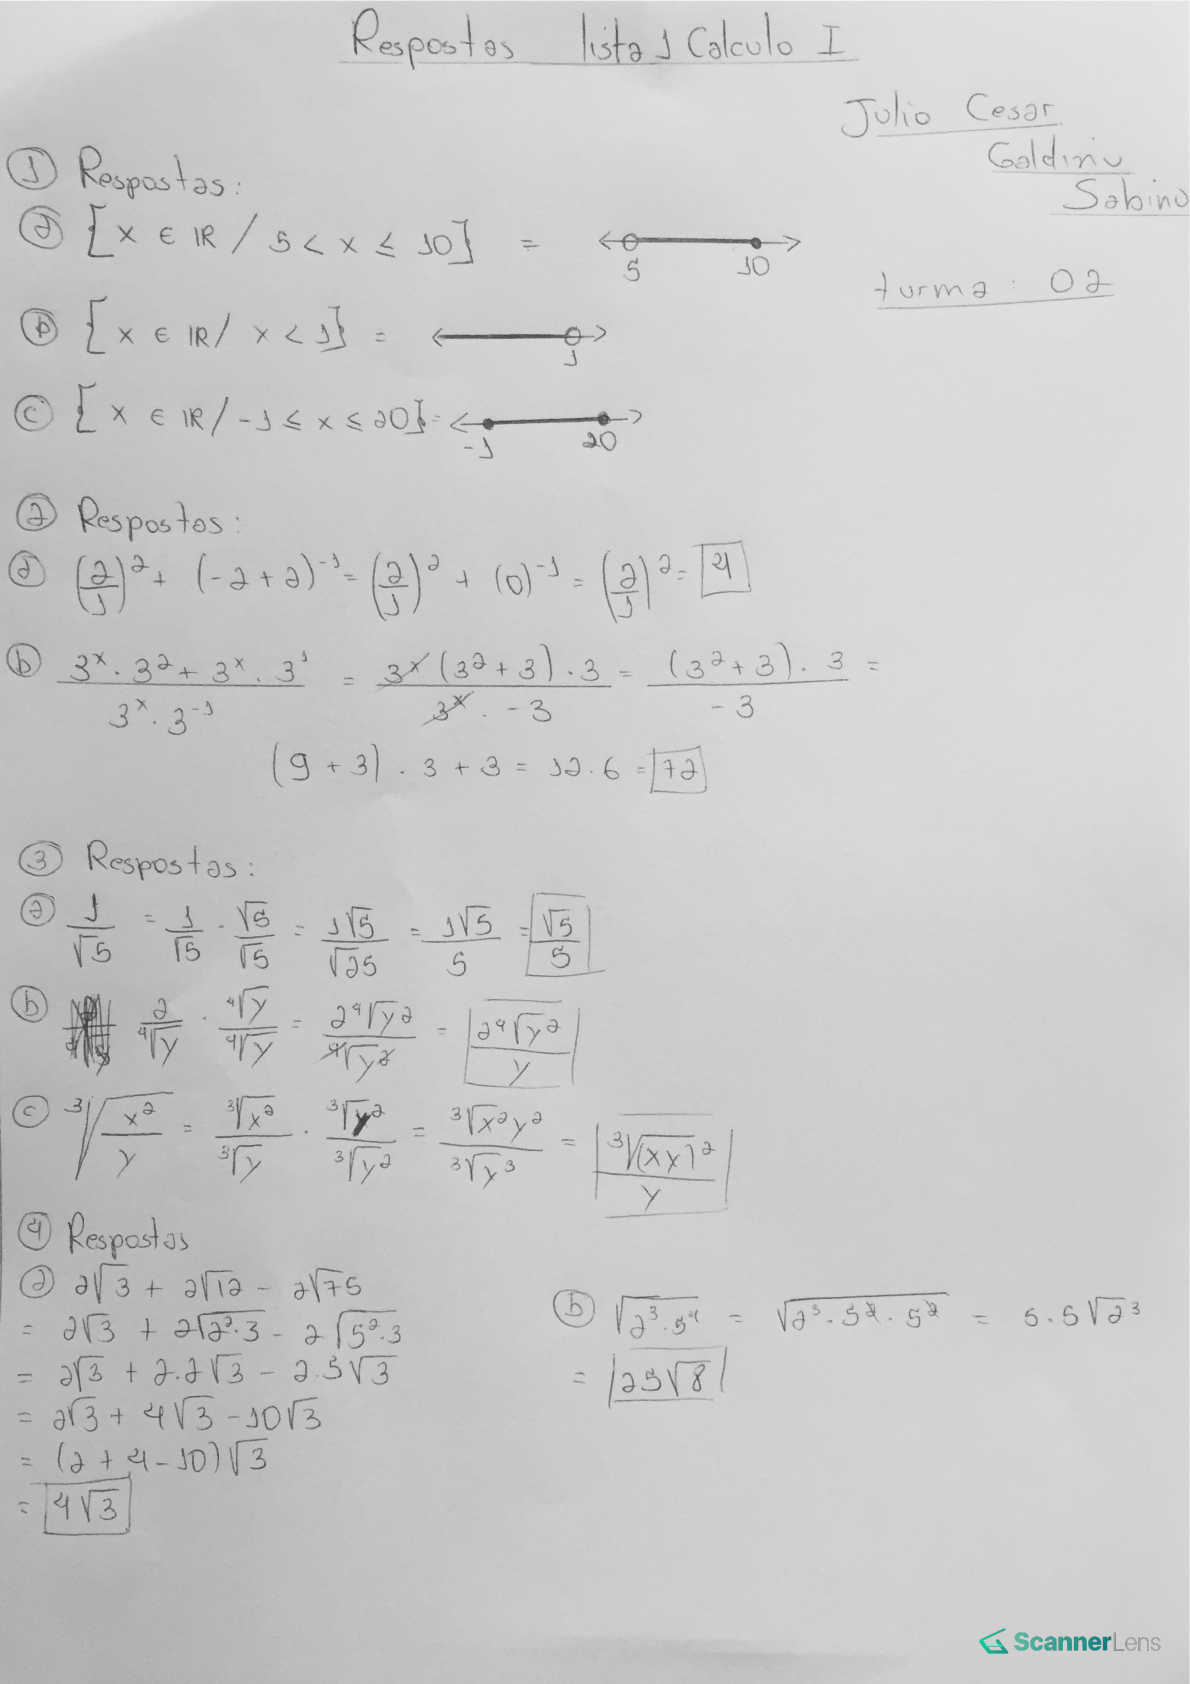 Respostas lista 1 Calculo I
Julio Cesar
Galdino
Sabino
turma: 02
① Respostas:
ⓐ [x ∈ IR / 5 < x ≤ 10] = 5 10
ⓑ [x ∈ IR / x < 1] = 1
ⓒ [x ∈ IR / -1 ≤ x ≤ 20] = -1 20
② Respostas:
ⓐ (2/1)² + (-2+2)⁻¹ = (2/1)² + (0)⁻¹ = (2/1)² = 4
ⓑ (3ˣ · 3² + 3ˣ · 3¹)/(3ˣ · 3⁻¹) = (3ˣ (3² + 3) · 3)/(3ˣ · -3) = ((3² + 3) · 3)/(-3) =
(9 + 3) · 3 + 3 = 12 · 6 = 72
③ Respostas:
ⓐ 1/√5 = 1/√5 · √5/√5 = 1√5/√25 = 1√5/5 = √5/5
ⓑ 2/⁴√y · ⁴√y/⁴√y = 2⁴√y²/⁴√y² = 2⁴√y²/y
ⓒ ³√(x²/y) = ³√x²/³√y · ³√y²/³√y² = ³√x²y²/³√y³ = ³√(xy)²/y
④ Respostas
ⓐ 2√3 + 2√12 - 2√75
= 2√3 + 2√2²·3 - 2√5²·3
= 2√3 + 2.2√3 - 2.5√3
= 2√3 + 4√3 - 10√3
= (2 + 4 - 10)√3
= 4√3
ⓑ √2³·5⁴ = √2³·5²·5² = 5.5√2³
= 25√8
ScannerLens